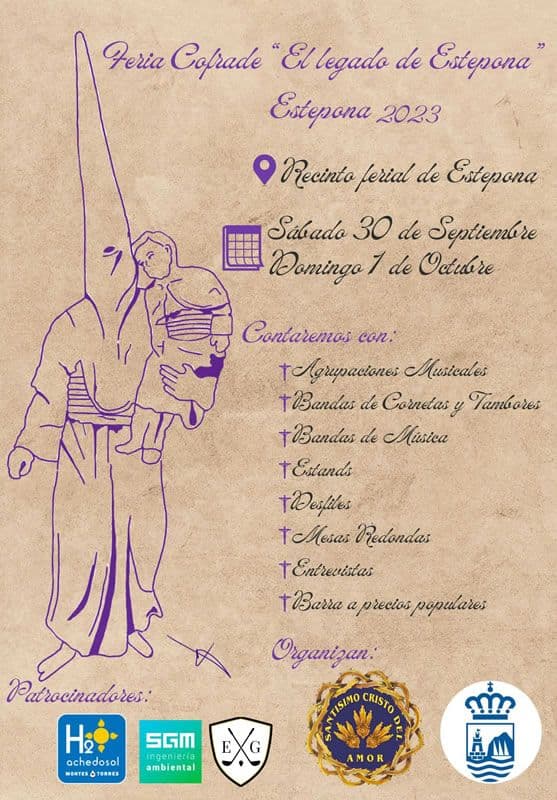 Feria Cofrade "El legado de Estepona"
Estepona 2023
Recinto ferial de Estepona
Sábado 30 de Septiembre
Domingo 1 de Octubre
Contaremos con:
Agrupaciones Musicales
Bandas de Cornetas y Tambores
Bandas de Música
Estands
Desfiles
Mesas Redondas
Entrevistas
Barra a precios populares
Organizan:
Patrocinadores:
H2O
achedosol
MONTES TORRES
SGM
ingeniería
ambiental
E G
SANTISIMO CRISTO DEL
AMOR